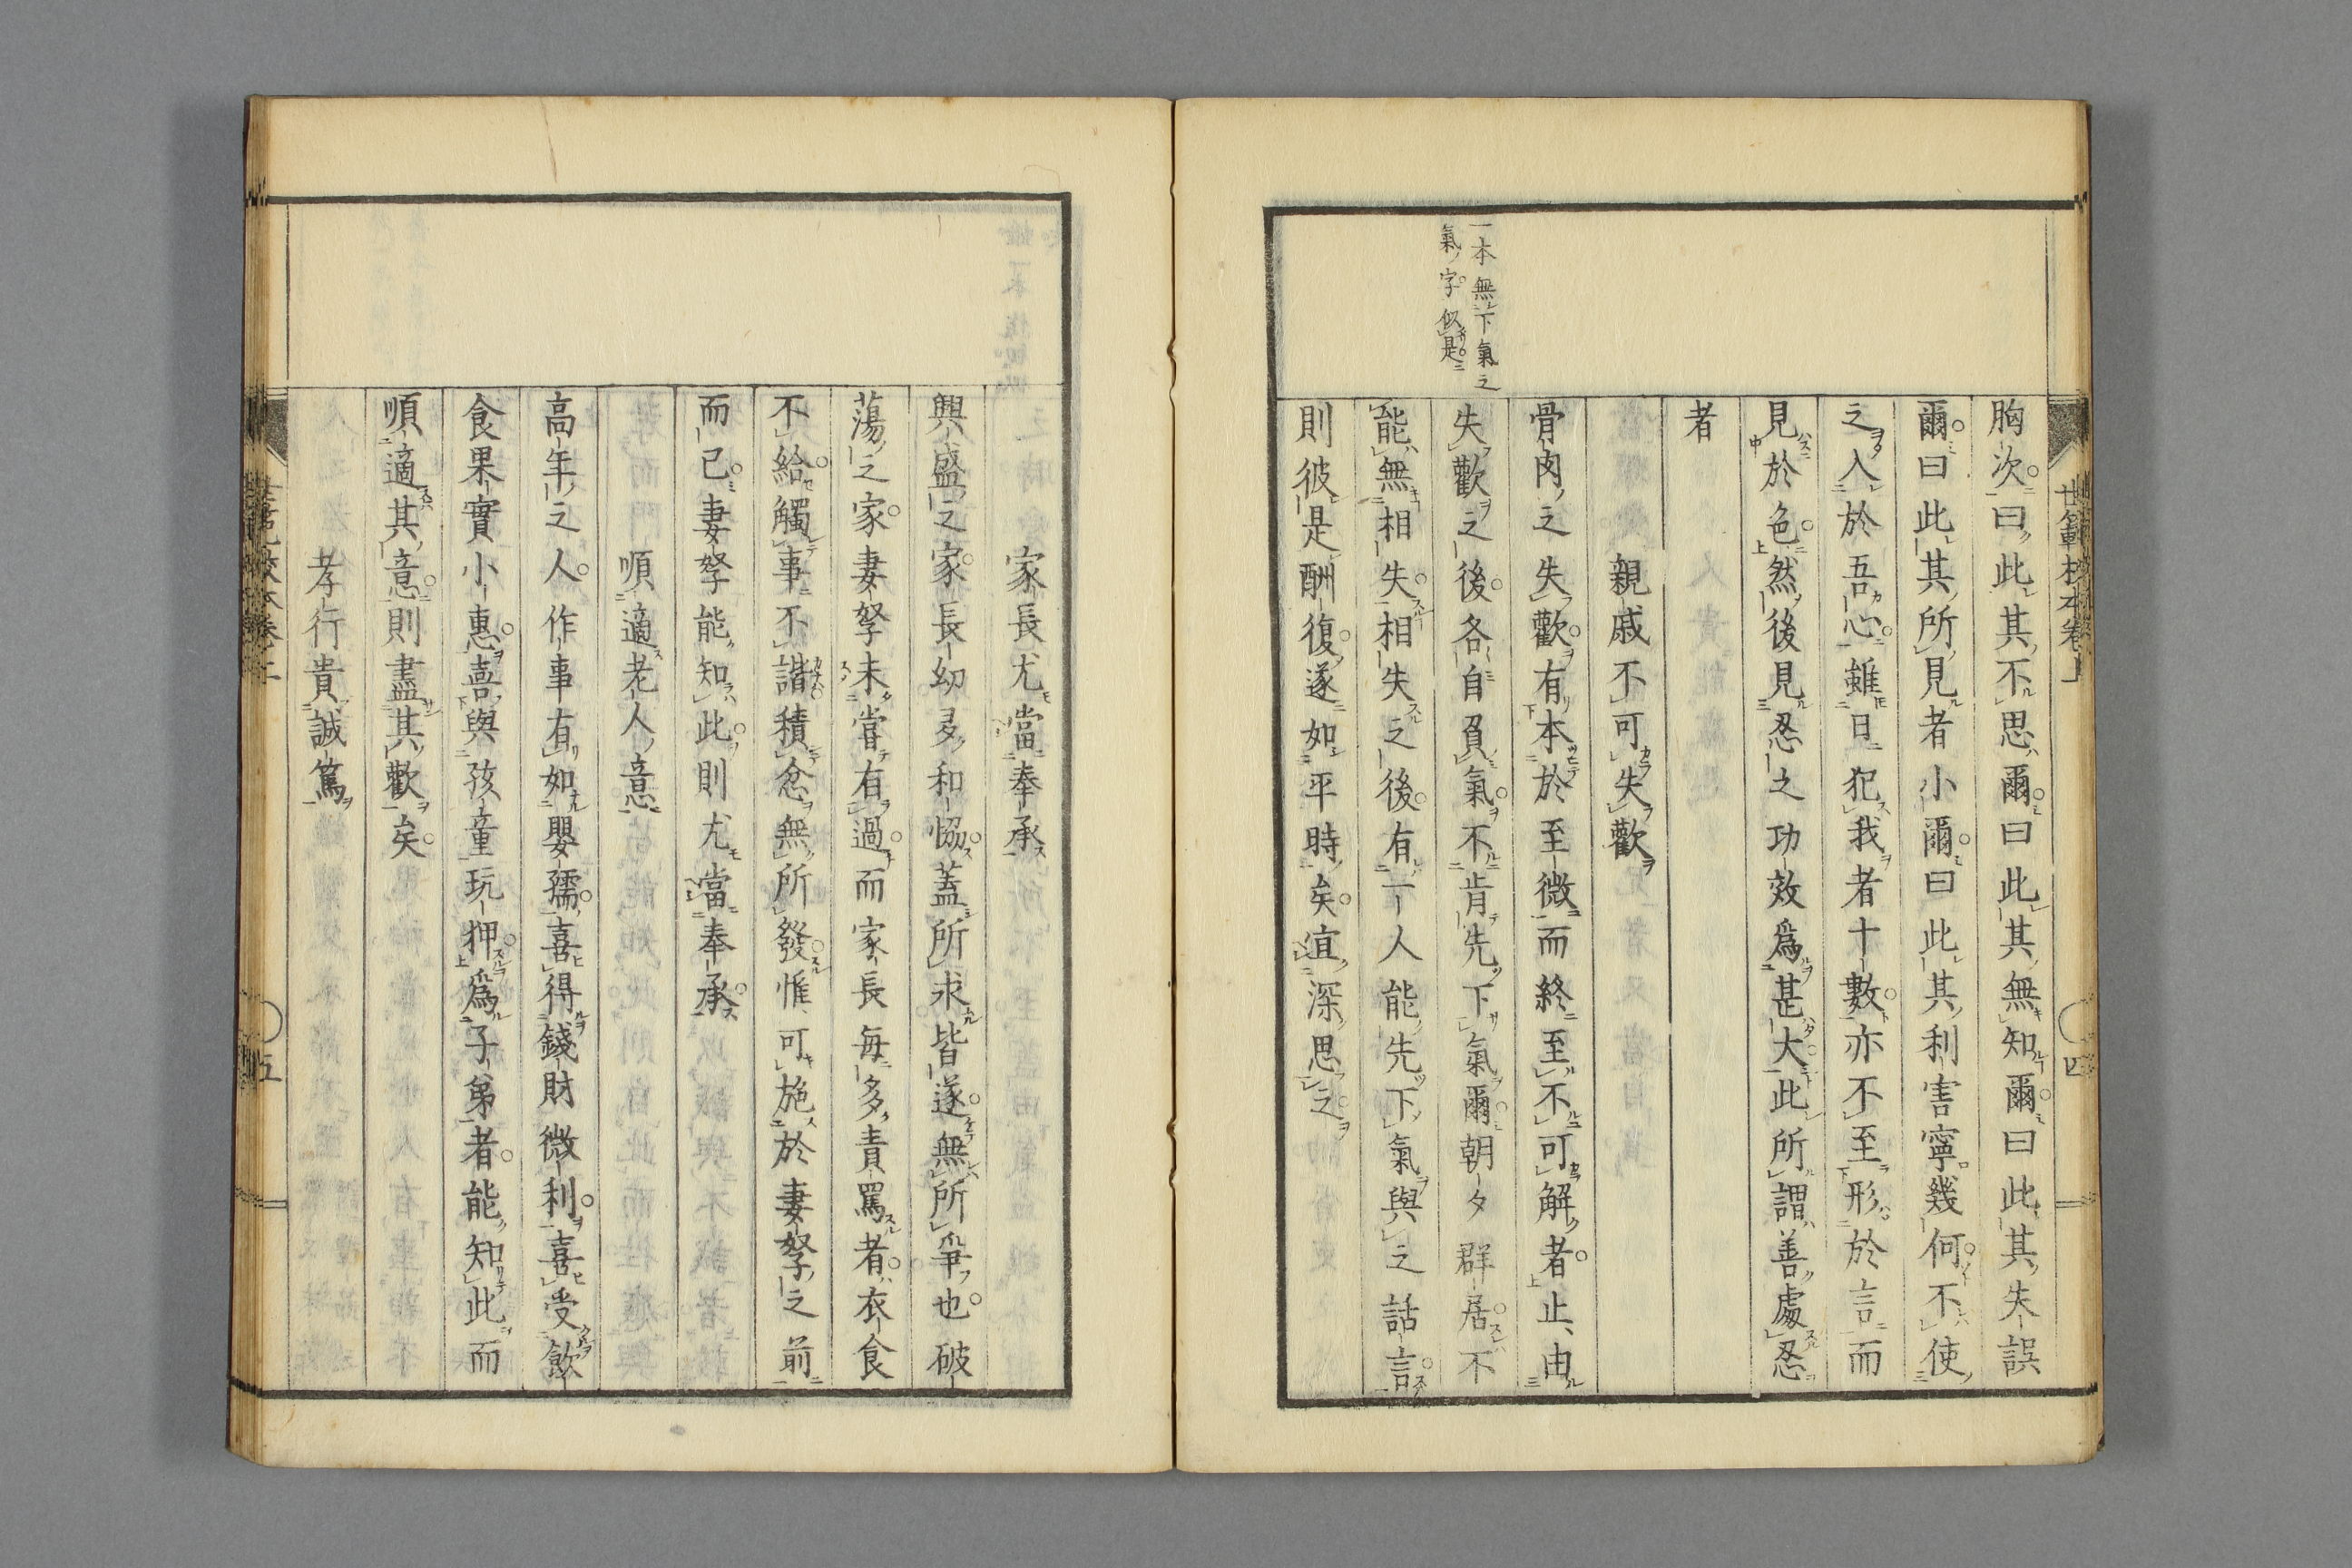 世範校本卷上
四
一本無下氣之
氣字似是
胸次曰此其不思爾曰此其無知爾曰此其失誤
爾曰此其所見者小爾曰此其利害寧幾何不使
之入於吾心雖日犯我者十數亦不至形於言而
見於色然後見忍之功效爲甚大此所謂善處忍
者
親戚不可失歡
骨肉之失歡有本於至微而終至不可解者止由
失歡之後各自負氣不肯先下氣爾朝夕群居不
能無相失相失之後有一人能先下氣與之話言
則彼是酬復遂如平時矣宜深思之
家長尤當奉承
興盛之家長幼多和恊蓋所求皆遂無所爭也破
蕩之家妻孥未嘗有過而家長每多責罵者衣食
不給觸事不諧積忿無所發惟可施於妻孥之前
而已妻孥能知此則尤當奉承
順適老人意
高年之人作事有如嬰孺喜得錢財微利喜受飮
食果實小惠喜與孩童玩狎爲子弟者能知此而
順適其意則盡其歡矣
孝行貴誠篤
五